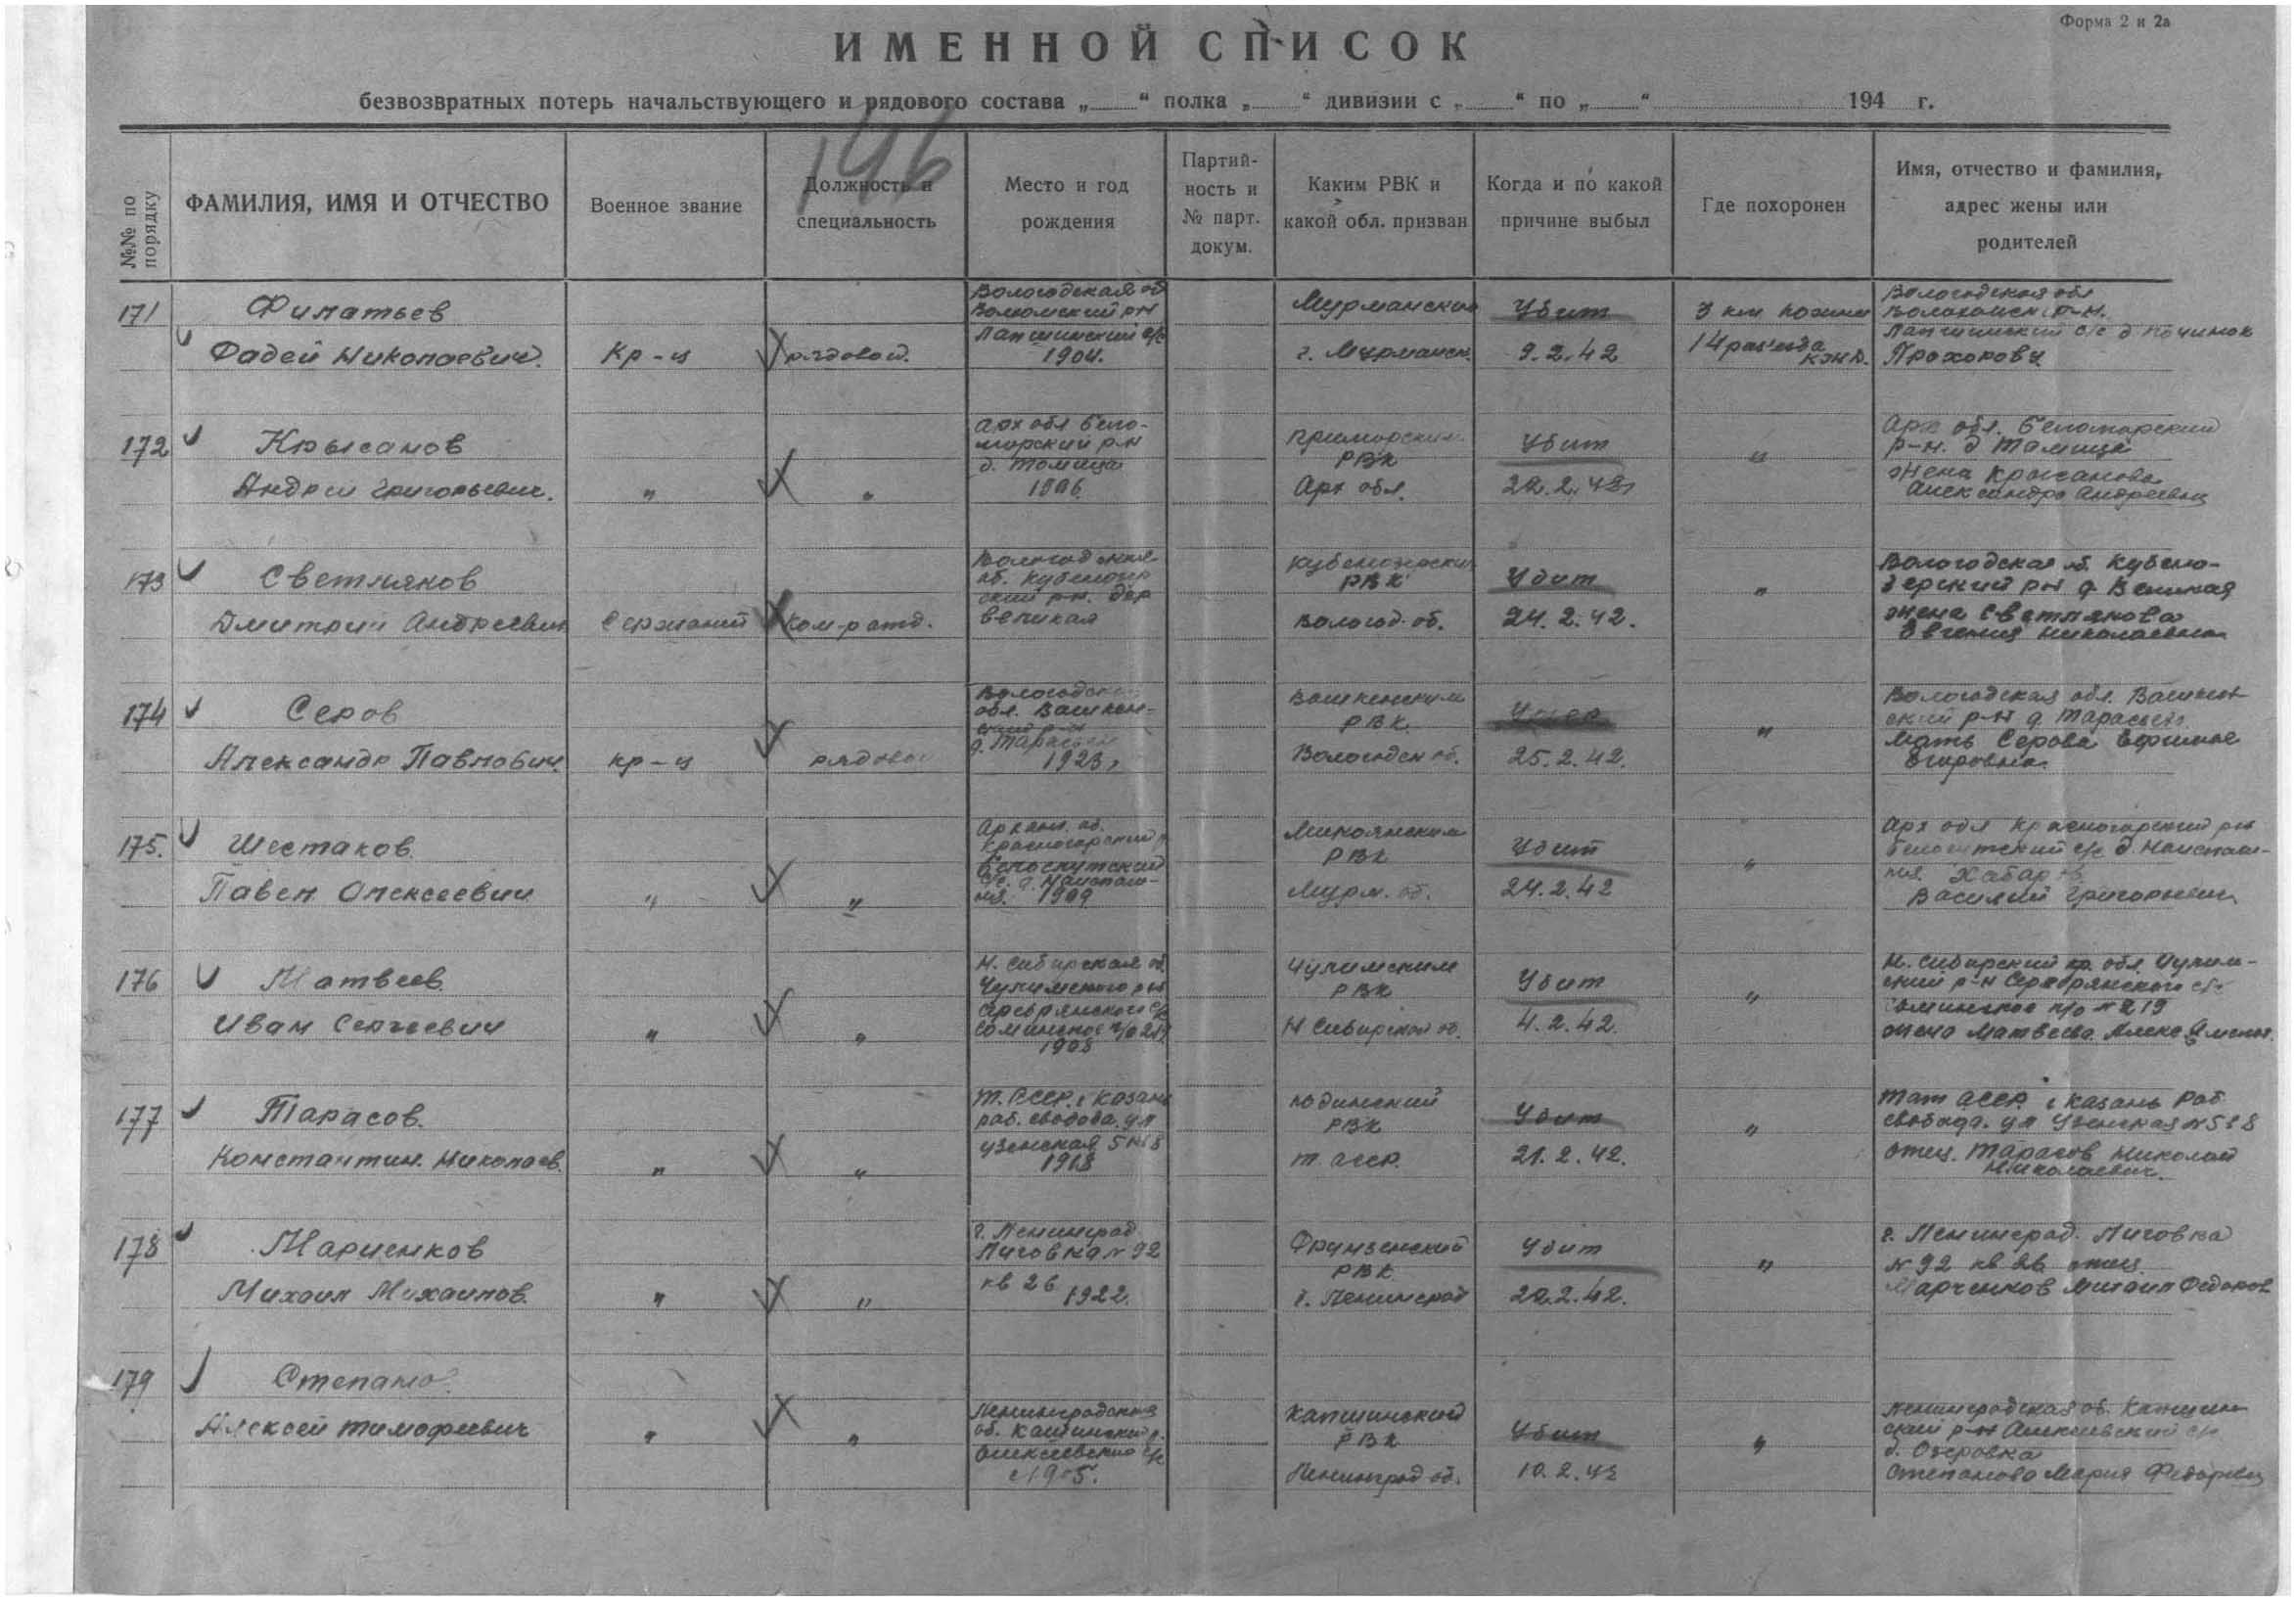 Форма 2 и 2а
ИМЕННОЙ СПИСОК
безвозвратных потерь начальствующего и рядового состава „____“ полка „____“ дивизии с „____“ по „____“ ________ 194 г.
146
№№ по порядку
ФАМИЛИЯ, ИМЯ И ОТЧЕСТВО
Военное звание
Должность и специальность
Место и год рождения
Партийность и № парт. докум.
Каким РВК и какой обл. призван
Когда и по какой причине выбыл
Где похоронен
Имя, отчество и фамилия, адрес жены или родителей
171
Филатьев
Фадей Николаевич.
Кр-ц
рядовой.
Вологодская об
р-н
Лапшинский с/с
1904.
Мурманским
г. Мурманск.
Убит
9.2.42
3 км
14 раз'езда
Вологодская обл
р-н.
Лапшинский с/с д. Починок
Прохорову
172
Крысанов
Андрей Григорьевич.
"
"
Арх обл Бело-
морский р-н
д. Тамица
1906
Приморским
РВК
Арх обл.
Убит
22.2.42
"
Арх обл. Беломорский
р-н. д Тамица
жена Крысанова
Александра Андреевна
173
Светляков
Дмитрий Андреевич
Сержант
Ком-р отд.
Вологодская
об. Кубеноозер
ский р-н. дер
Великая
Кубеноозерским
РВК
Вологод. об.
Убит
24.2.42.
"
Вологодская об. Кубено-
зерский р-н д. Великая
жена Светлякова
Евгения Николаевна
174
Серов
Александр Павлович.
кр-ц
рядовой
Вологодская
обл. Вашкин-
ский р-н
1923
Вашкинским
РВК
Вологодск об.
25.2.42.
"
Вологодская обл. Вашкин
ский р-н д.
мать Серова
Егоровна
175.
Шестаков
Павел Алексеевич
"
"
Архан. об.
Красногорский р
Белослутский
с/с. д.
1909
Микоянским
РВК
Мурм. об.
Убит
24.2.42
"
Арх обл Красногорский р-н
Белослутский с/с д.
Василий Григорьевич
176
Матвеев
Иван Сергеевич
"
"
Н. Сибирская об.
Чулымского р-н
Серебрянского с/с
1908
Чулымским
РВК
Н Сибирской об.
Убит
4.2.42.
"
Н. Сибирский кр. обл. Чулым-
ский р-н Серебрянского с/с
п/о № 219
жена Матвеева
177
Тарасов.
Константин Николаев.
"
"
Т. АССР. г Казань
раб. свобода. ул
1918
Юдинский
РВК
Т АССР.
Убит
21.2.42.
"
Тат АССР г Казань Раб.
свобода. ул
отец. Тарасов Николай
Николаевич.
178
Марченков
Михаил Михайлов.
"
"
г. Ленинград.
Лиговка № 92
кв 26
1922.
Фрунзенский
РВК
г. Ленинград
Убит
22.2.42.
"
г. Ленинград. Лиговка
№ 92 кв 26 отец
Марченков Михаил Федоров
179
Степанов
Алексей Тимофеевич
"
"
Ленинградская
об. Капшинский р.
Алексеевский с/с
Капшинский
РВК
Ленинград об.
Убит
10.2.42
"
Ленинградская об. Капшин
ский р-н Алексеевский с/с
д. Озеровка
Степанова Мария Федоровна